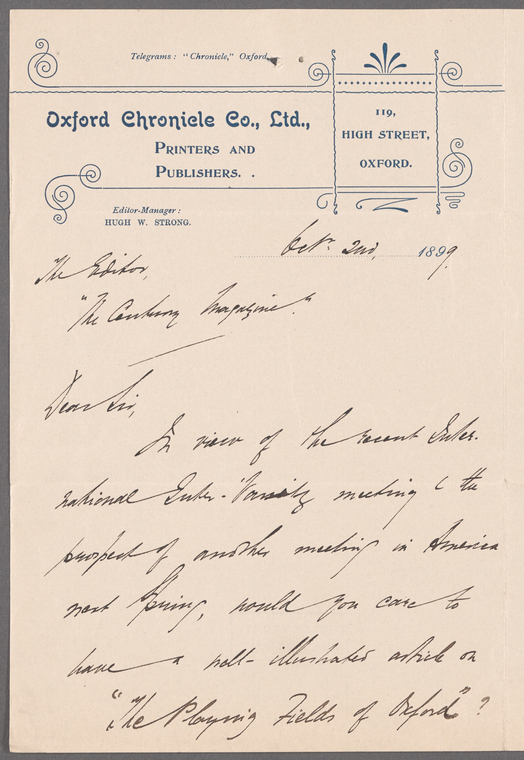 Telegrams: "Chronicle," Oxford.
Oxford Chronicle Co., Ltd.,
PRINTERS AND
PUBLISHERS. .
119,
HIGH STREET,
OXFORD.
Editor-Manager:
HUGH W. STRONG.
Oct. 2nd, 1899.
The Editor,
"The Century Magazine."
Dear Sir,
In view of the recent Inter-
national Inter-'Varsity meeting & the
prospect of another meeting in America
next Spring, would you care to
have a well-illustrated article on
"The Playing Fields of Oxford"?